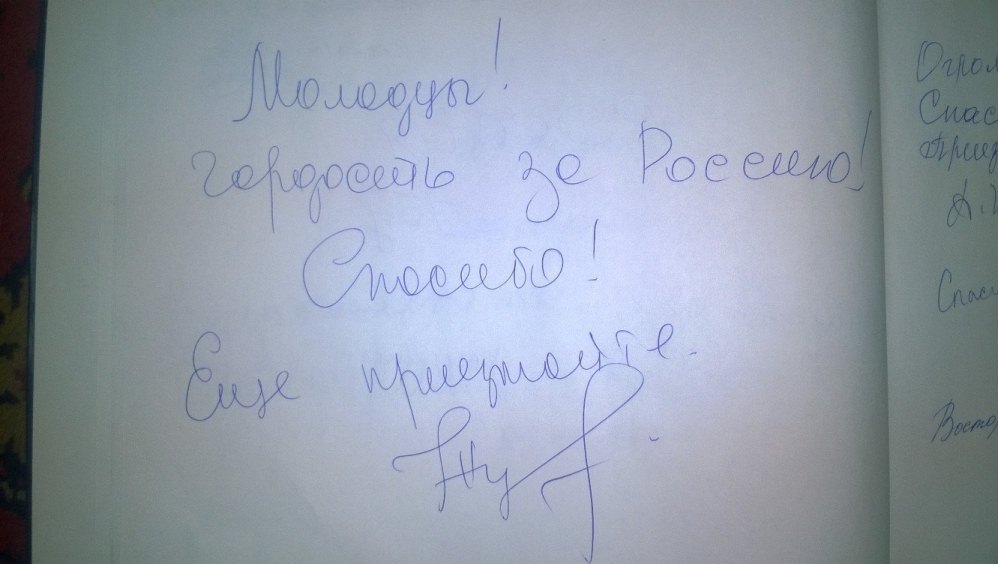 Молодцы!
гордость за Россию!
Спасибо!
Еще приезжайте.
Огром
Спас
Спаси
Востор